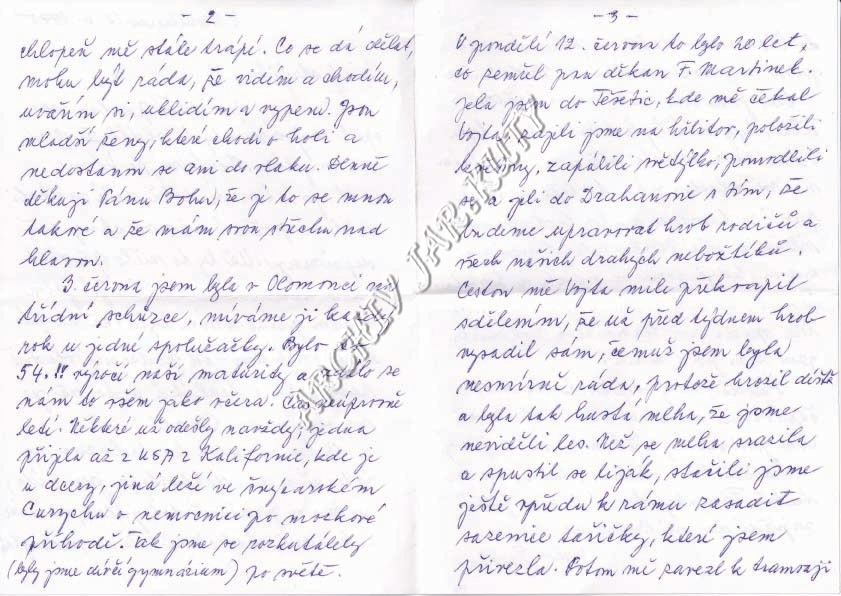 - 2 -
chlopeň mě stále trápí. Co se dá dělat,
mohu být ráda, že vidím a chodím,
uvařím si, uklidím a vyperu. Jsou
mladší ženy, které chodí o holi a
nedostanou se ani do vlaku. Denně
děkuji Pánu Bohu, že je to se mnou
takové a že mám svou střechu nad
hlavou.
3. června jsem byla v Olomouci na
třídní schůzce, míváme ji každý
rok u jedné spolužačky. Bylo to
54.!! výročí naší maturity a zdálo se
nám to všem jako včera. Čas neúprosně
letí. Některé už odešly navždy, jedna
přijela až z USA z Kalifornie, kde je
u dcery, jiná leží ve švýcarském
Curychu v nemocnici po mozkové
příhodě. Tak jsme se rozkutálely
(byly jsme dívčí gymnázium) po světě.
- 3 -
V pondělí 12. června to bylo 20 let,
co zemřel pan děkan F. Martinek.
Jela jsem do Těšetic, kde mě čekal
Vojta, zajeli jsme na hřbitov, položili
květiny, zapálili světýlko, pomodlili
se a jeli do Drahanovic s tím, že
budeme upravovat hrob rodičů a
všech našich drahých nebožtíků.
Cestou mě Vojta mile překvapil
sdělením, že už před týdnem hrob
vysadil sám, čemuž jsem byla
nesmírně ráda, protože hrozil déšť
a byla tak hustá mlha, že jsme
neviděli les. Než se mlha srazila
a spustil se liják, stačili jsme
ještě vpředu k rámu zasadit
sazenice tařičky, které jsem
přivezla. Potom mě zavezl k tramvaji
ARCHIV JAR-KUTY